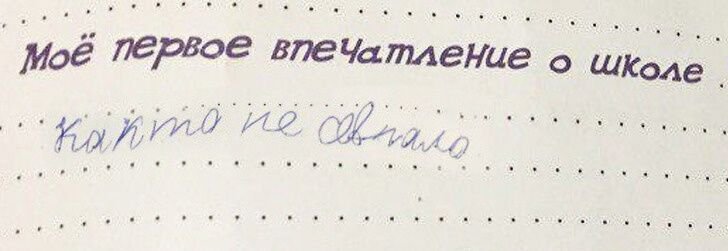 Моё первое впечатление о школе
както не овпало